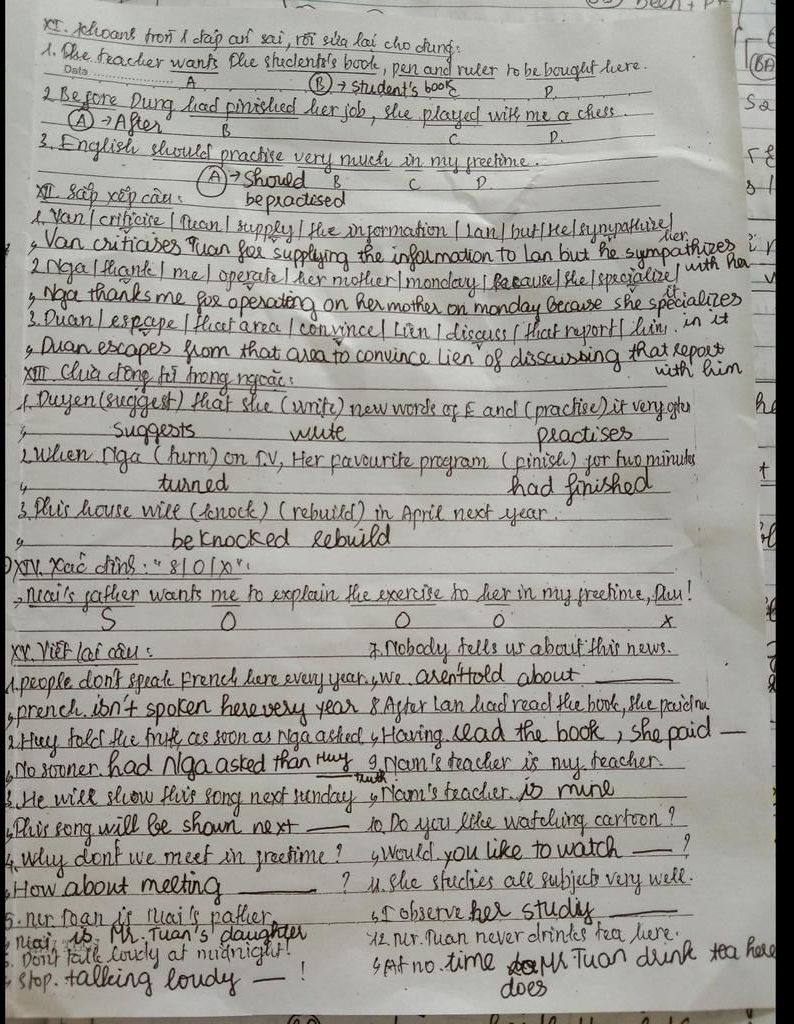 XI. Khoanh tròn 1 đáp án sai, rồi sửa lại cho đúng:
1. The teacher wants the students's book, pen and ruler to be bought here.
Date
A
B → student's book
C
D.
2. Before Dung had finished her job, she played with me a chess.
A → After
B
C
D.
3. English should practise very much in my freetime.
A → Should be practised
B
C
D.
XII. Sắp xếp câu:
1. Van | criticise | Tuan | supply | the information | Lan | but | He | sympathize | her
↳ Van criticises Tuan for supplying the information to Lan but he sympathizes with her
2. Nga | thank | me | operate | her mother | monday | Because | she | specialize | it
↳ Nga thanks me for operating on her mother on monday because she specializes in it
3. Duan | escape | that area | convince | Lien | discuss | that report | him.
↳ Duan escapes from that area to convince Lien of discussing that report with him
XIII. Chia động từ trong ngoặc:
1. Duyen (suggest) that she (write) new words of E and (practise) it very often
↳ suggests write practises
2. When Nga (turn) on T.V, Her favourite program (finish) for two minutes
↳ turned had finished
3. This house will (knock) (rebuild) in April next year.
↳ be knocked rebuild
XIV. Xác định: "S/O/X":
→ Mai's father wants me to explain the exercise to her in my freetime, Thu!
S O O O X
XV. Viết lại câu:
1. people don't speak French here every year
↳ French isn't spoken here very year
2. They told the truth, as soon as Nga asked
↳ No sooner had Nga asked than they truth
3. He will show this song next sunday
↳ This song will be shown next ___
4. Why don't we meet in freetime?
↳ How about meeting ___ ?
5. Mr Toan is Mai's father.
↳ Mai is Mr. Tuan's daughter
6. Don't talk loudy at midnight!
↳ Stop talking loudy ___ !
7. Nobody tells us about this news.
↳ we aren't told about ___
8. After Lan had read the book, she paid me
↳ Having read the book, she paid ___
9. Nam's teacher is my teacher.
↳ Nam's teacher is mine
10. Do you like watching cartoon?
↳ Would you like to watch ___ ?
11. She studies all subjects very well.
↳ I observe her studiy ___
12. Mr. Tuan never drinks tea here.
↳ At no time does Mr Tuan drink tea here